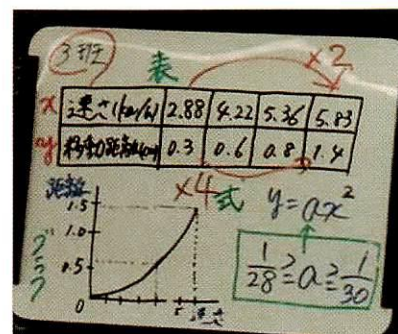 3班
表
×2
x 速さ(km/h) 2.88 4.22 5.36 5.83
y 移動距離(cm) 0.3 0.6 0.8 1.4
×4
距離
1.5
1.0
0.5
0
5 速さ
グラフ
式
y=ax²
1/28 ≧ a ≧ 1/30